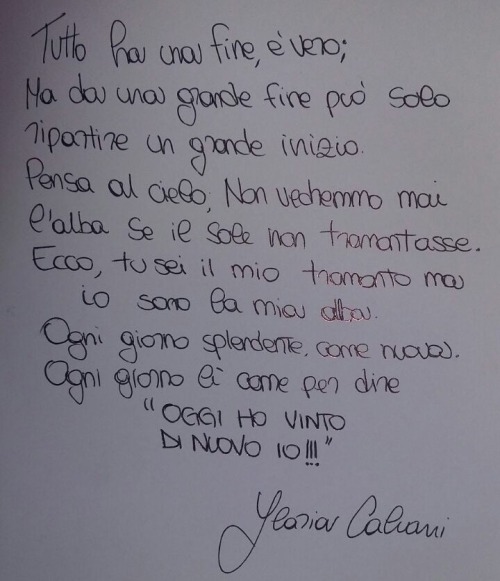 Tutto ha una fine, è vero;
Ma da una grande fine può solo
ripartire un grande inizio.
Pensa al cielo, Non vedremmo mai
l'alba se il sole non tramontasse.
Ecco, tu sei il mio tramonto ma
io sono la mia alba.
Ogni giorno splendente, come nuova.
Ogni giorno lì come per dire
"OGGI HO VINTO
DI NUOVO IO!!!"
Ylaria Calvani